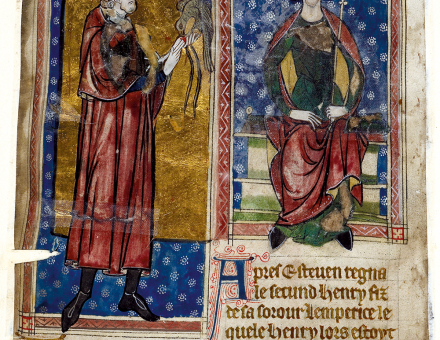 Apres Esteuen regna
le secund Henry fiz
de sa soeour lemperice le
quele Henry lors estoyt